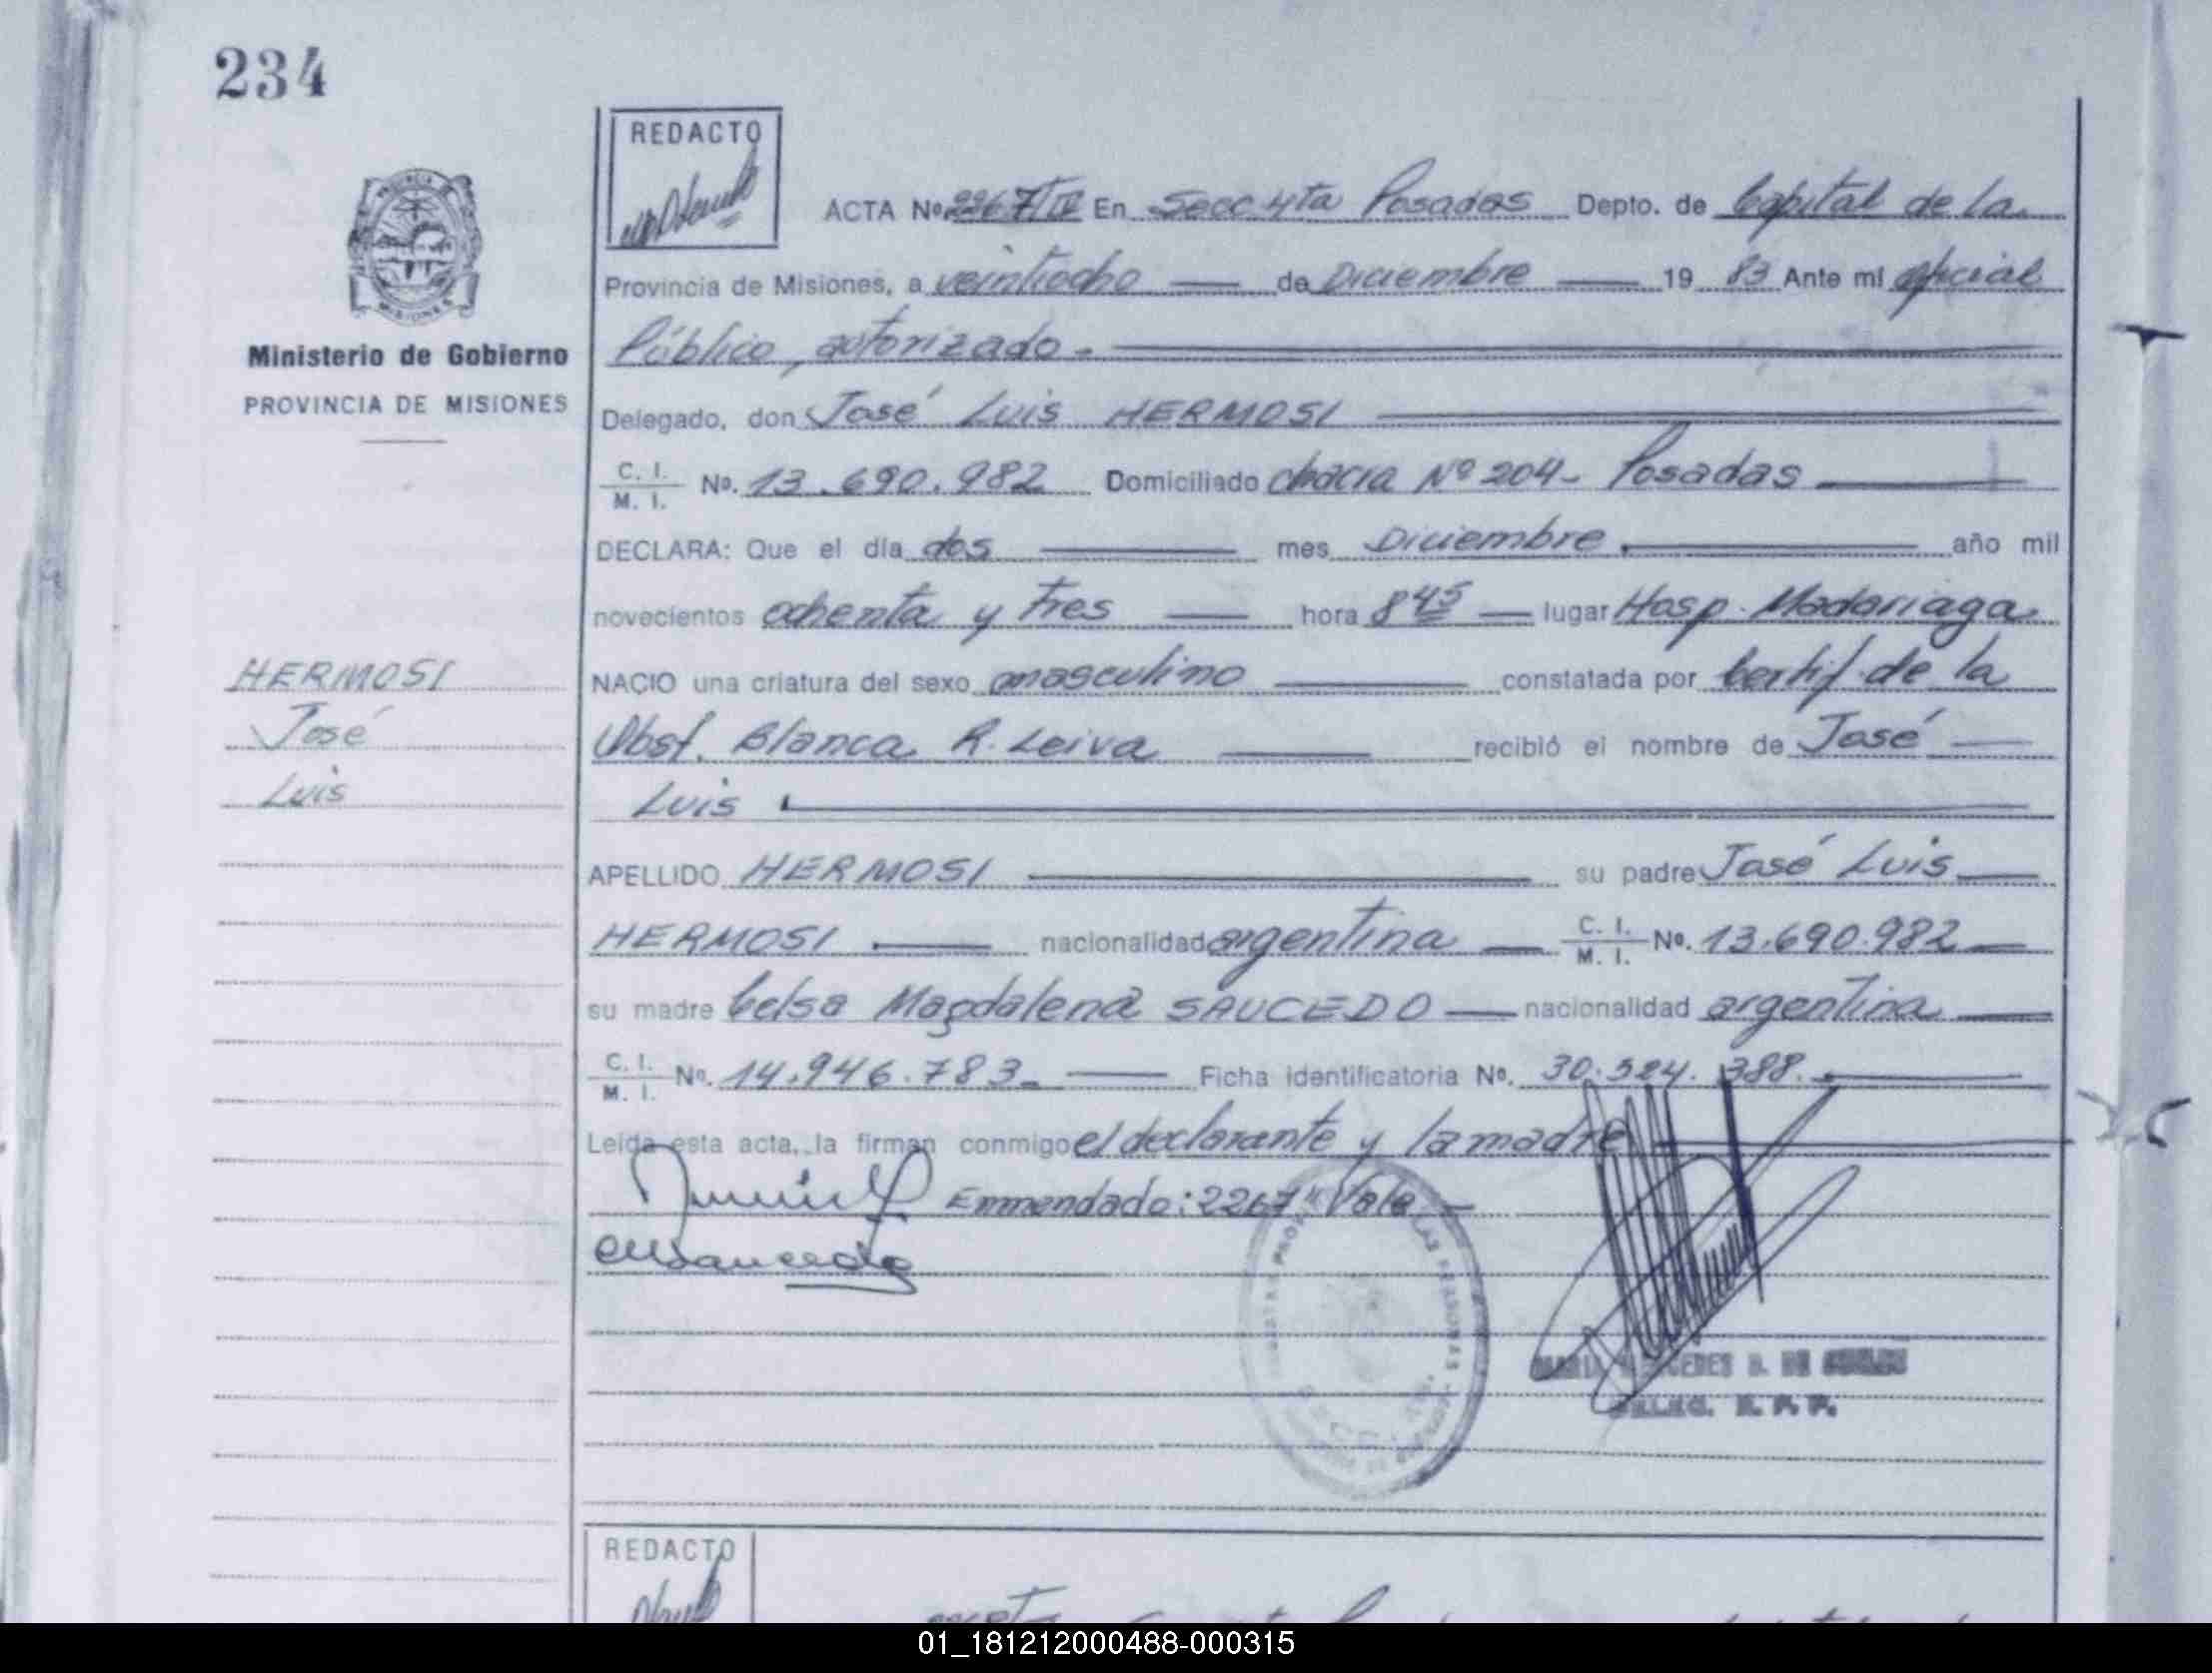 234
REDACTO
ACTA Nº 2267/IV En Secc 4ta Posadas Depto. de Capital de la
Provincia de Misiones, a veintiocho de Diciembre 19 83 Ante mi oficial
Público, autorizado.
Delegado, don José Luis HERMOSI
C. I.
M. I. Nº. 13.690.982 Domiciliado chacra Nº 204- Posadas
DECLARA: Que el día dos mes Diciembre año mil
novecientos ochenta y tres hora 8 45 lugar Hosp. Madariaga
NACIO una criatura del sexo masculino constatada por Certif. de la
Obst. Blanca R. Leiva recibió el nombre de José
Luis
APELLIDO HERMOSI su padre José Luis
HERMOSI nacionalidad argentina C. I.
M. I. Nº. 13.690.982
su madre Celsa Magdalena SAUCEDO nacionalidad argentina
C. I.
M. I. Nº. 14.946.783 Ficha identificatoria Nº. 30.524.388.
Leída esta acta, la firman conmigo el declarante y la madre
Enmendado: 2267" Vale
PROVINCIA DE
MISIONES
Ministerio de Gobierno
PROVINCIA DE MISIONES
HERMOSI
José
Luis
DE LAS PERSONAS
REDACTO
01_181212000488-000315